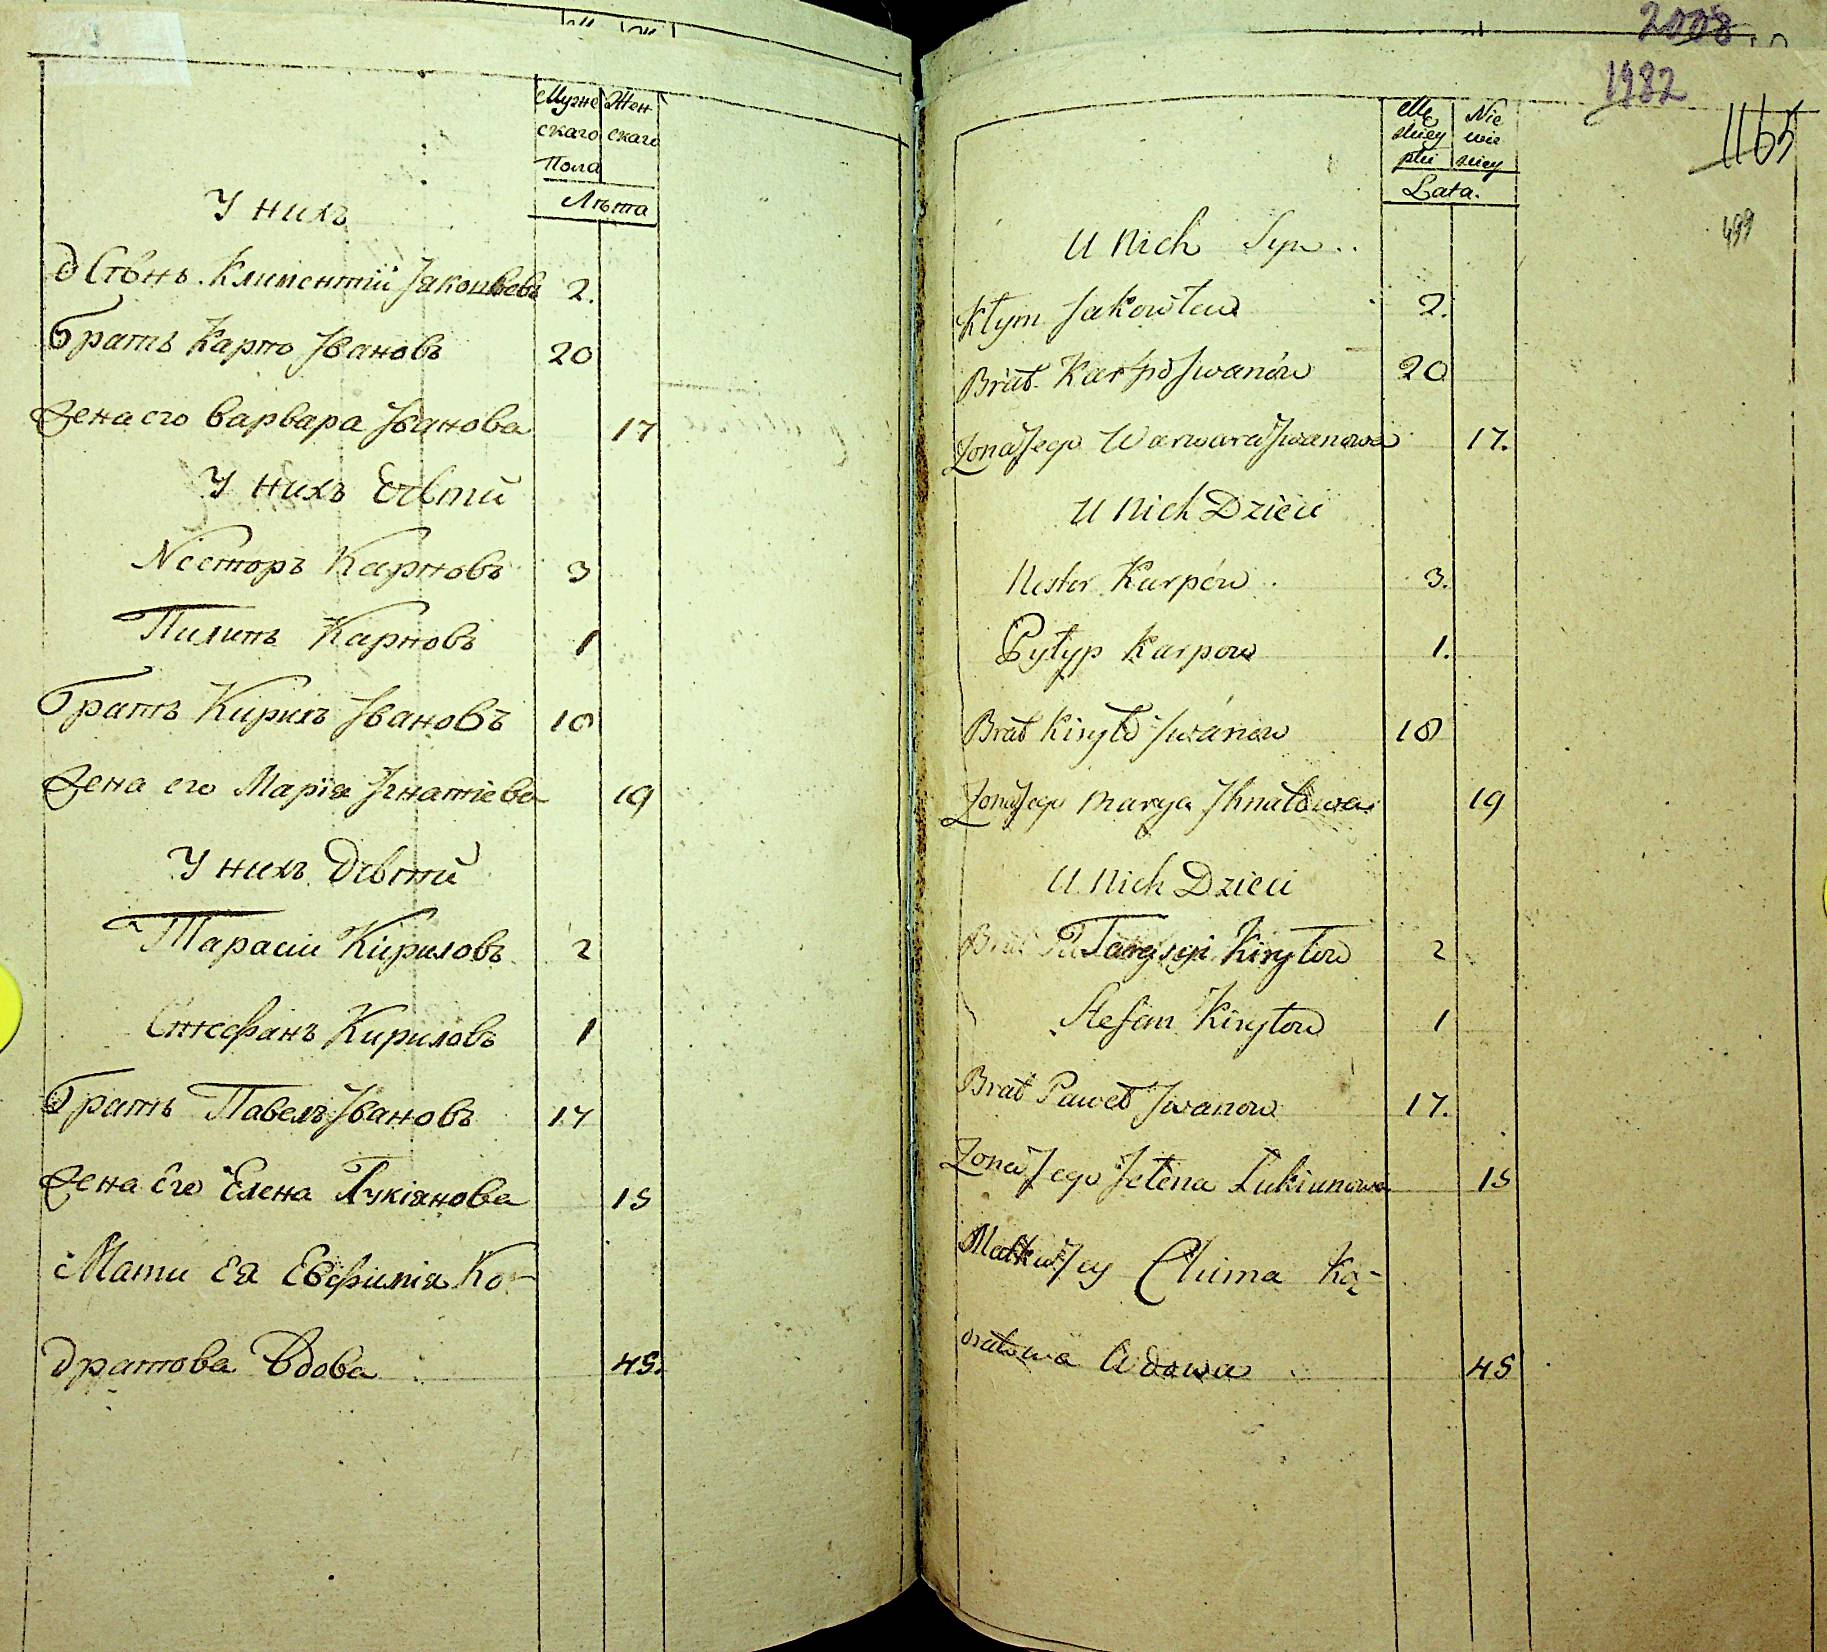 Муже Жен
скаго скаго
Пола
Лѣта
У нихъ
Сынъ Климентій Яковлевъ 2.
братъ Карпо Ивановъ 20
Жена его Варвара Іванова 17
У нихъ дѣти
Несторъ Карповъ 3
Пилипъ Карповъ 1
братъ Кирилъ Івановъ 18
Жена его Марія Ігнатіева 19
У нихъ дѣти
Тарасій Кириловъ 2
Стефанъ Кириловъ 1
братъ Павелъ Івановъ 17
Жена его Елена Лукіянова 15
Мати ея Евфимія Ко-
дратова Вдова 45.
2008
1982
1165
499
Mę Nie
skiey wie
płci skiey
Lata.
U Nich Syn..
Kłym Jakowlew 2.
Brat Karpo Jwanów 20
Zona Jego Warwara Jwanowa 17.
U Nich Dzieci
Nestor Karpów 3.
Pyłyp Karpow 1.
Brat Kiryło Jwanow 18
Zona Jego Marya Jhnatowa 19
U Nich Dzieci
Tarasyi Kiryłow 2
Stefan Kiryłow 1
Brat Paweł Jwanow 17.
Zona Jego Jełena Łukianowa 15
Matka Jey Chima Ką-
dratowa Wdowa 45